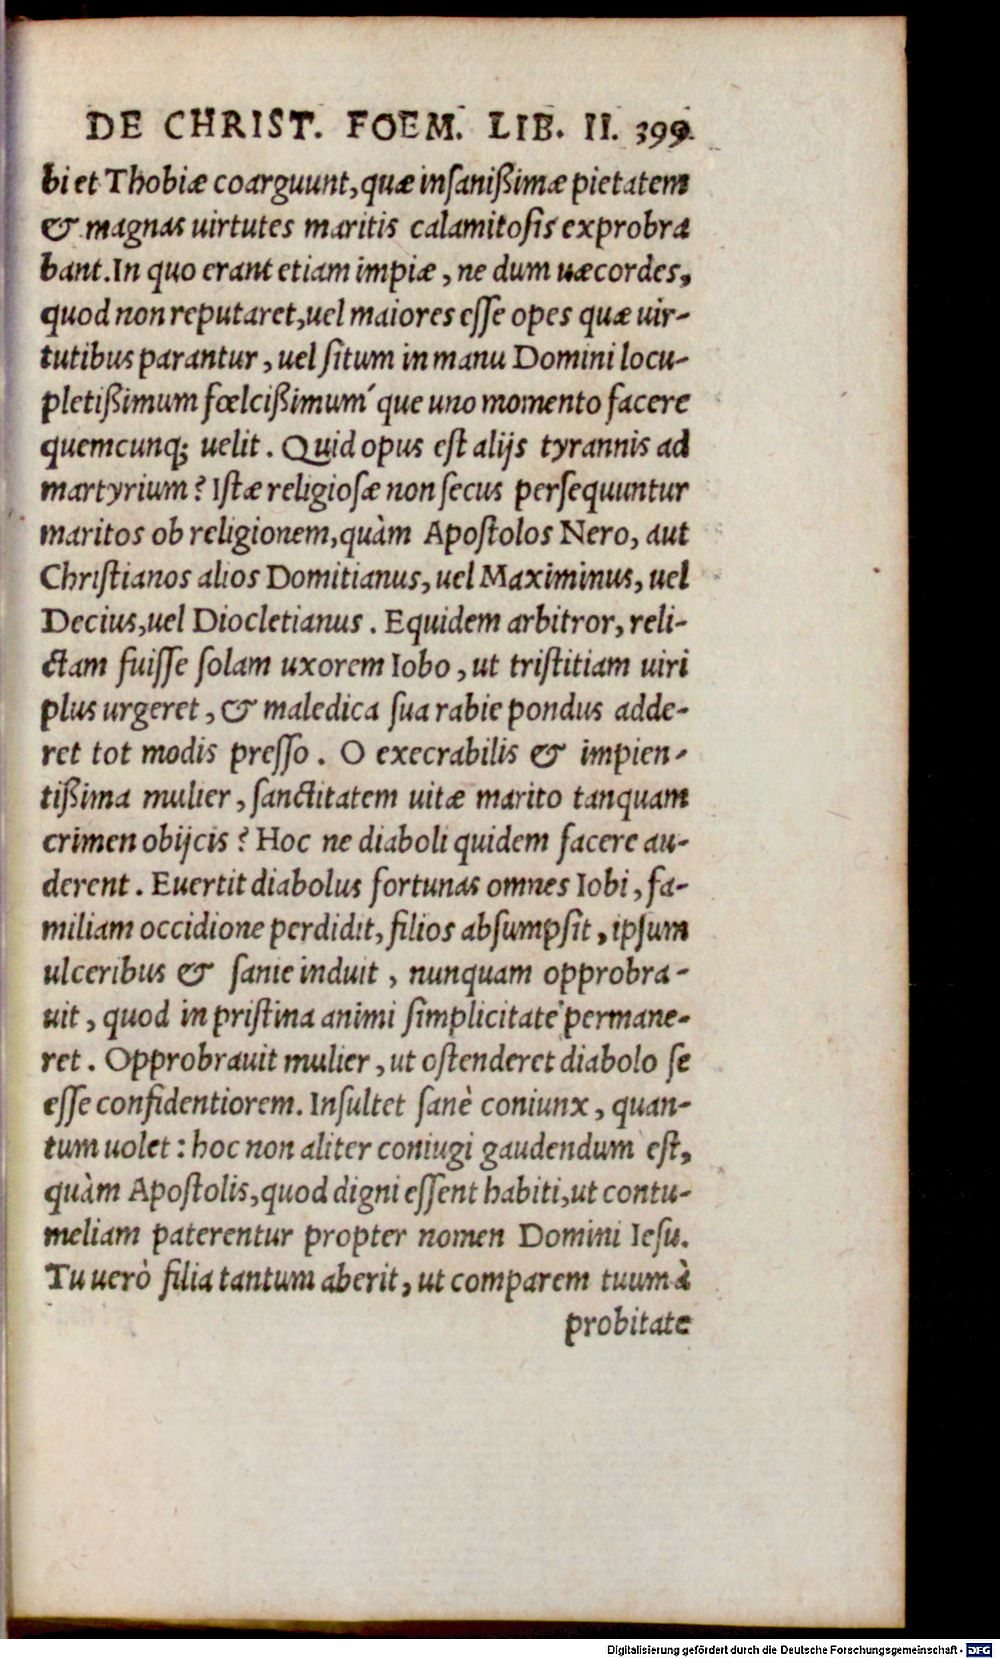 DE CHRIST. FOEM. LIB. II. 399.
bi et Thobiæ coarguunt, quæ insanißimæ pietatem
& magnas uirtutes maritis calamitosis exprobra
bant. In quo erant etiam impiæ, ne dum uæcordes,
quod non reputaret, uel maiores esse opes quæ uir-
tutibus parantur, uel situm in manu Domini locu-
pletißimum fœlcißimum´ que uno momento facere
quemcunq; uelit. Quid opus est alijs tyrannis ad
martyrium? Istæ religiosæ non secus persequuntur
maritos ob religionem, quàm Apostolos Nero, aut
Christianos alios Domitianus, uel Maximinus, uel
Decius, uel Diocletianus. Equidem arbitror, reli-
ctam fuisse solam uxorem Iobo, ut tristitiam uiri
plus urgeret, & maledica sua rabie pondus adde-
ret tot modis presso. O execrabilis & impien-
tißima mulier, sanctitatem uitæ marito tanquam
crimen obijcis? Hoc ne diaboli quidem facere au-
derent. Euertit diabolus fortunas omnes Iobi, fa-
miliam occidione perdidit, filios absumpsit, ipsum
ulceribus & sanie induit, nunquam opprobra-
uit, quod in pristina animi simplicitate permane-
ret. Opprobrauit mulier, ut ostenderet diabolo se
esse confidentiorem. Insultet sanè coniunx, quan-
tum uolet: hoc non aliter coniugi gaudendum est,
quàm Apostolis, quod digni essent habiti, ut contu-
meliam paterentur propter nomen Domini Iesu.
Tu uerò filia tantum aberit, ut comparem tuum à
probitate
Digitalisierung gefördert durch die Deutsche Forschungsgemeinschaft - DFG